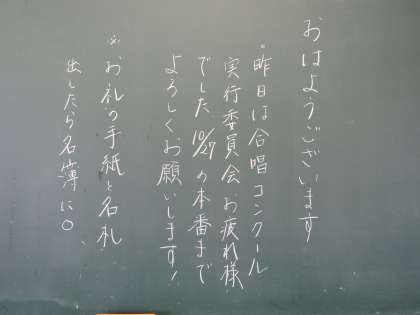 おはようございます
・昨日は合唱コンクール
実行委員会お疲れ様
でした 10/27 の本番まで
よろしくお願いします!
※お礼の手紙と名札
出したら名簿に○